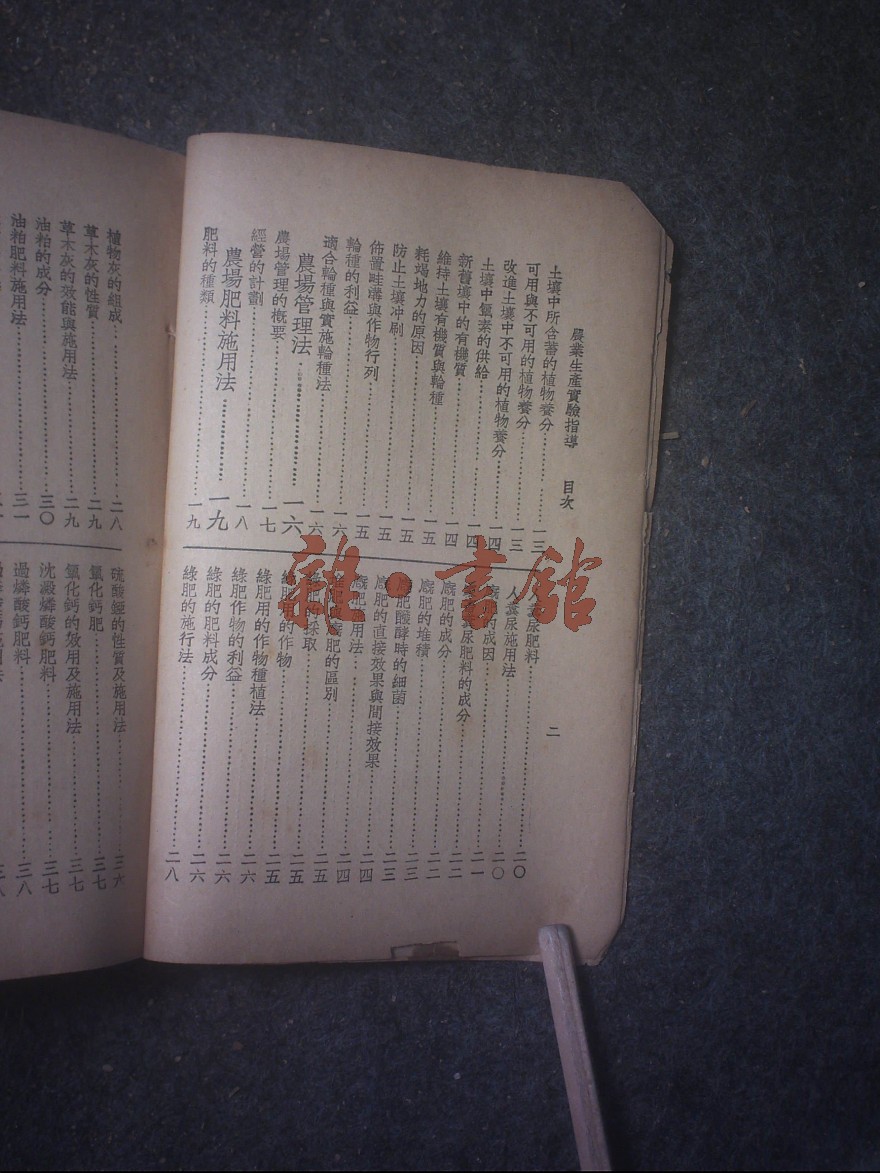 農業生產實驗指導 目次
二
土壤中所含蓄的植物養分 一三
可用與不可用的植物養分 一三
改進土壤中不可用的植物養分 一四
土壤中氮素的供給 一四
新舊壤中的有機質 一四
維持土壤有機質與輪種 一五
耗竭地力的原因 一五
防止土壤冲刷 一五
佈置畦溝與作物行列 一五
輪種的利益 一六
適合輪種與實施輪種法 一六
農場管理法 一六
農場管理的概要 一七
經營的計劃 一八
農場肥料施用法 一九
肥料的種類 一九
人糞尿肥料 二〇
人糞尿施用法 二〇
的成因 二一
尿肥料的成分 二二
廐肥的成分 二二
廐肥的堆積 二三
廐肥醱酵時的細菌 二三
廐肥的直接效果與間接效果 二四
廐肥施用法 二四
肥的區別 二五
綠肥的採取 二五
綠肥用的作物 二五
綠肥用的作物種植法 二六
綠肥作物的利益 二六
綠肥的肥料成分 二六
綠肥的施行法 二八
植物灰的組成 二八
草木灰的性質 二九
草木灰的效能與施用法 二九
油粕的成分 三〇
油粕肥料施用法 三一
硫酸錏的性質及施用法 三六
氰化鈣肥 三七
氰化鈣的效用及施用法 三七
沈澱燐酸鈣肥料 三七
過燐酸鈣肥料 三八
雜·書館